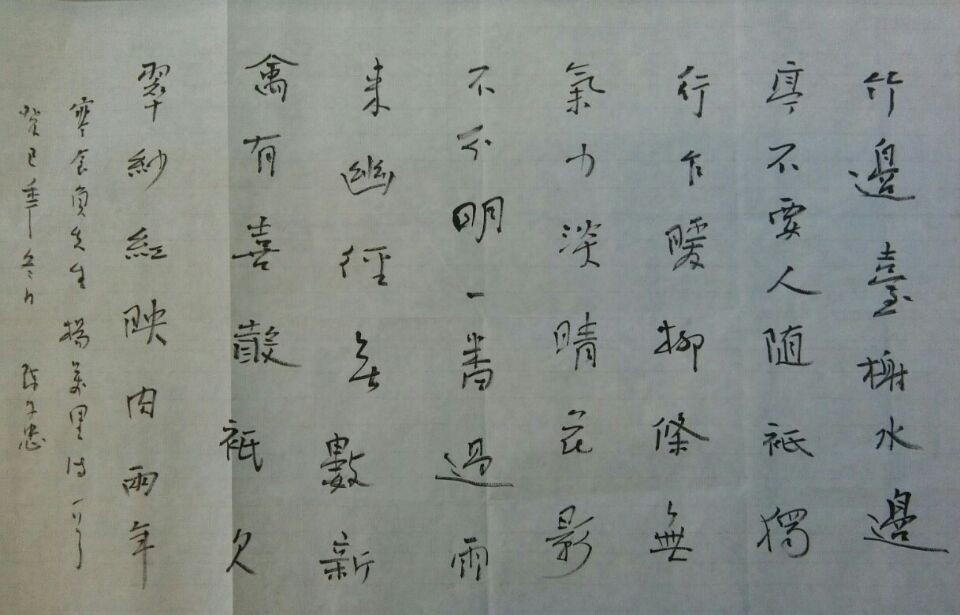 竹邊臺榭水邊
亭不要人随祇獨
行乍暖柳條無
氣力淡晴花影
不分明一番過雨
来幽徑无數新
禽有喜聲祇欠
翠紗紅映肉兩年
寒食負先生 楊萬里诗一首
癸巳年冬月 陈忠